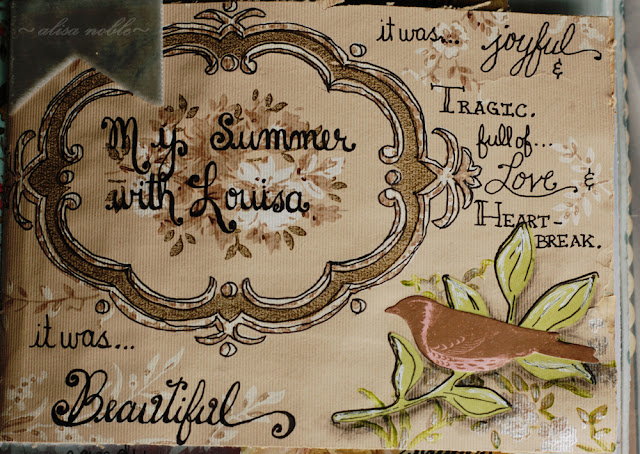 ~alisa noble~
My Summer
with Louisa
it was....
joyful
&
TRAGIC.
full of...
Love &
HEART-
BREAK.
it was...
Beautiful